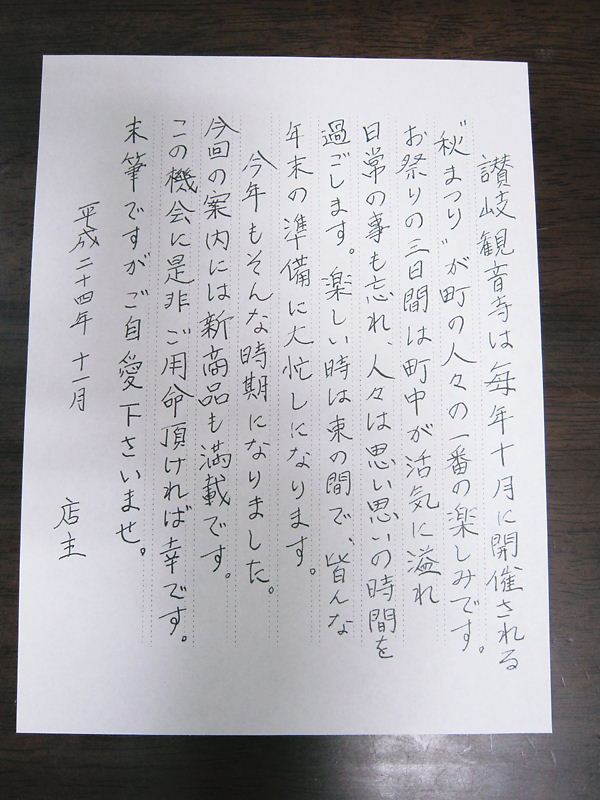 讃岐観音寺は毎年十月に開催される
"秋まつり"が町の人々の一番の楽しみです。
お祭りの三日間は町中が活気に溢れ
日常の事も忘れ、人々は思い思いの時間を
過ごします。楽しい時は束の間で、皆んな
年末の準備に大忙しになります。
今年もそんな時期になりました。
今回の案内には新商品も満載です。
この機会に是非ご用命頂ければ幸です。
末筆ですがご自愛下さいませ。
平成二十四年 十一月
店主